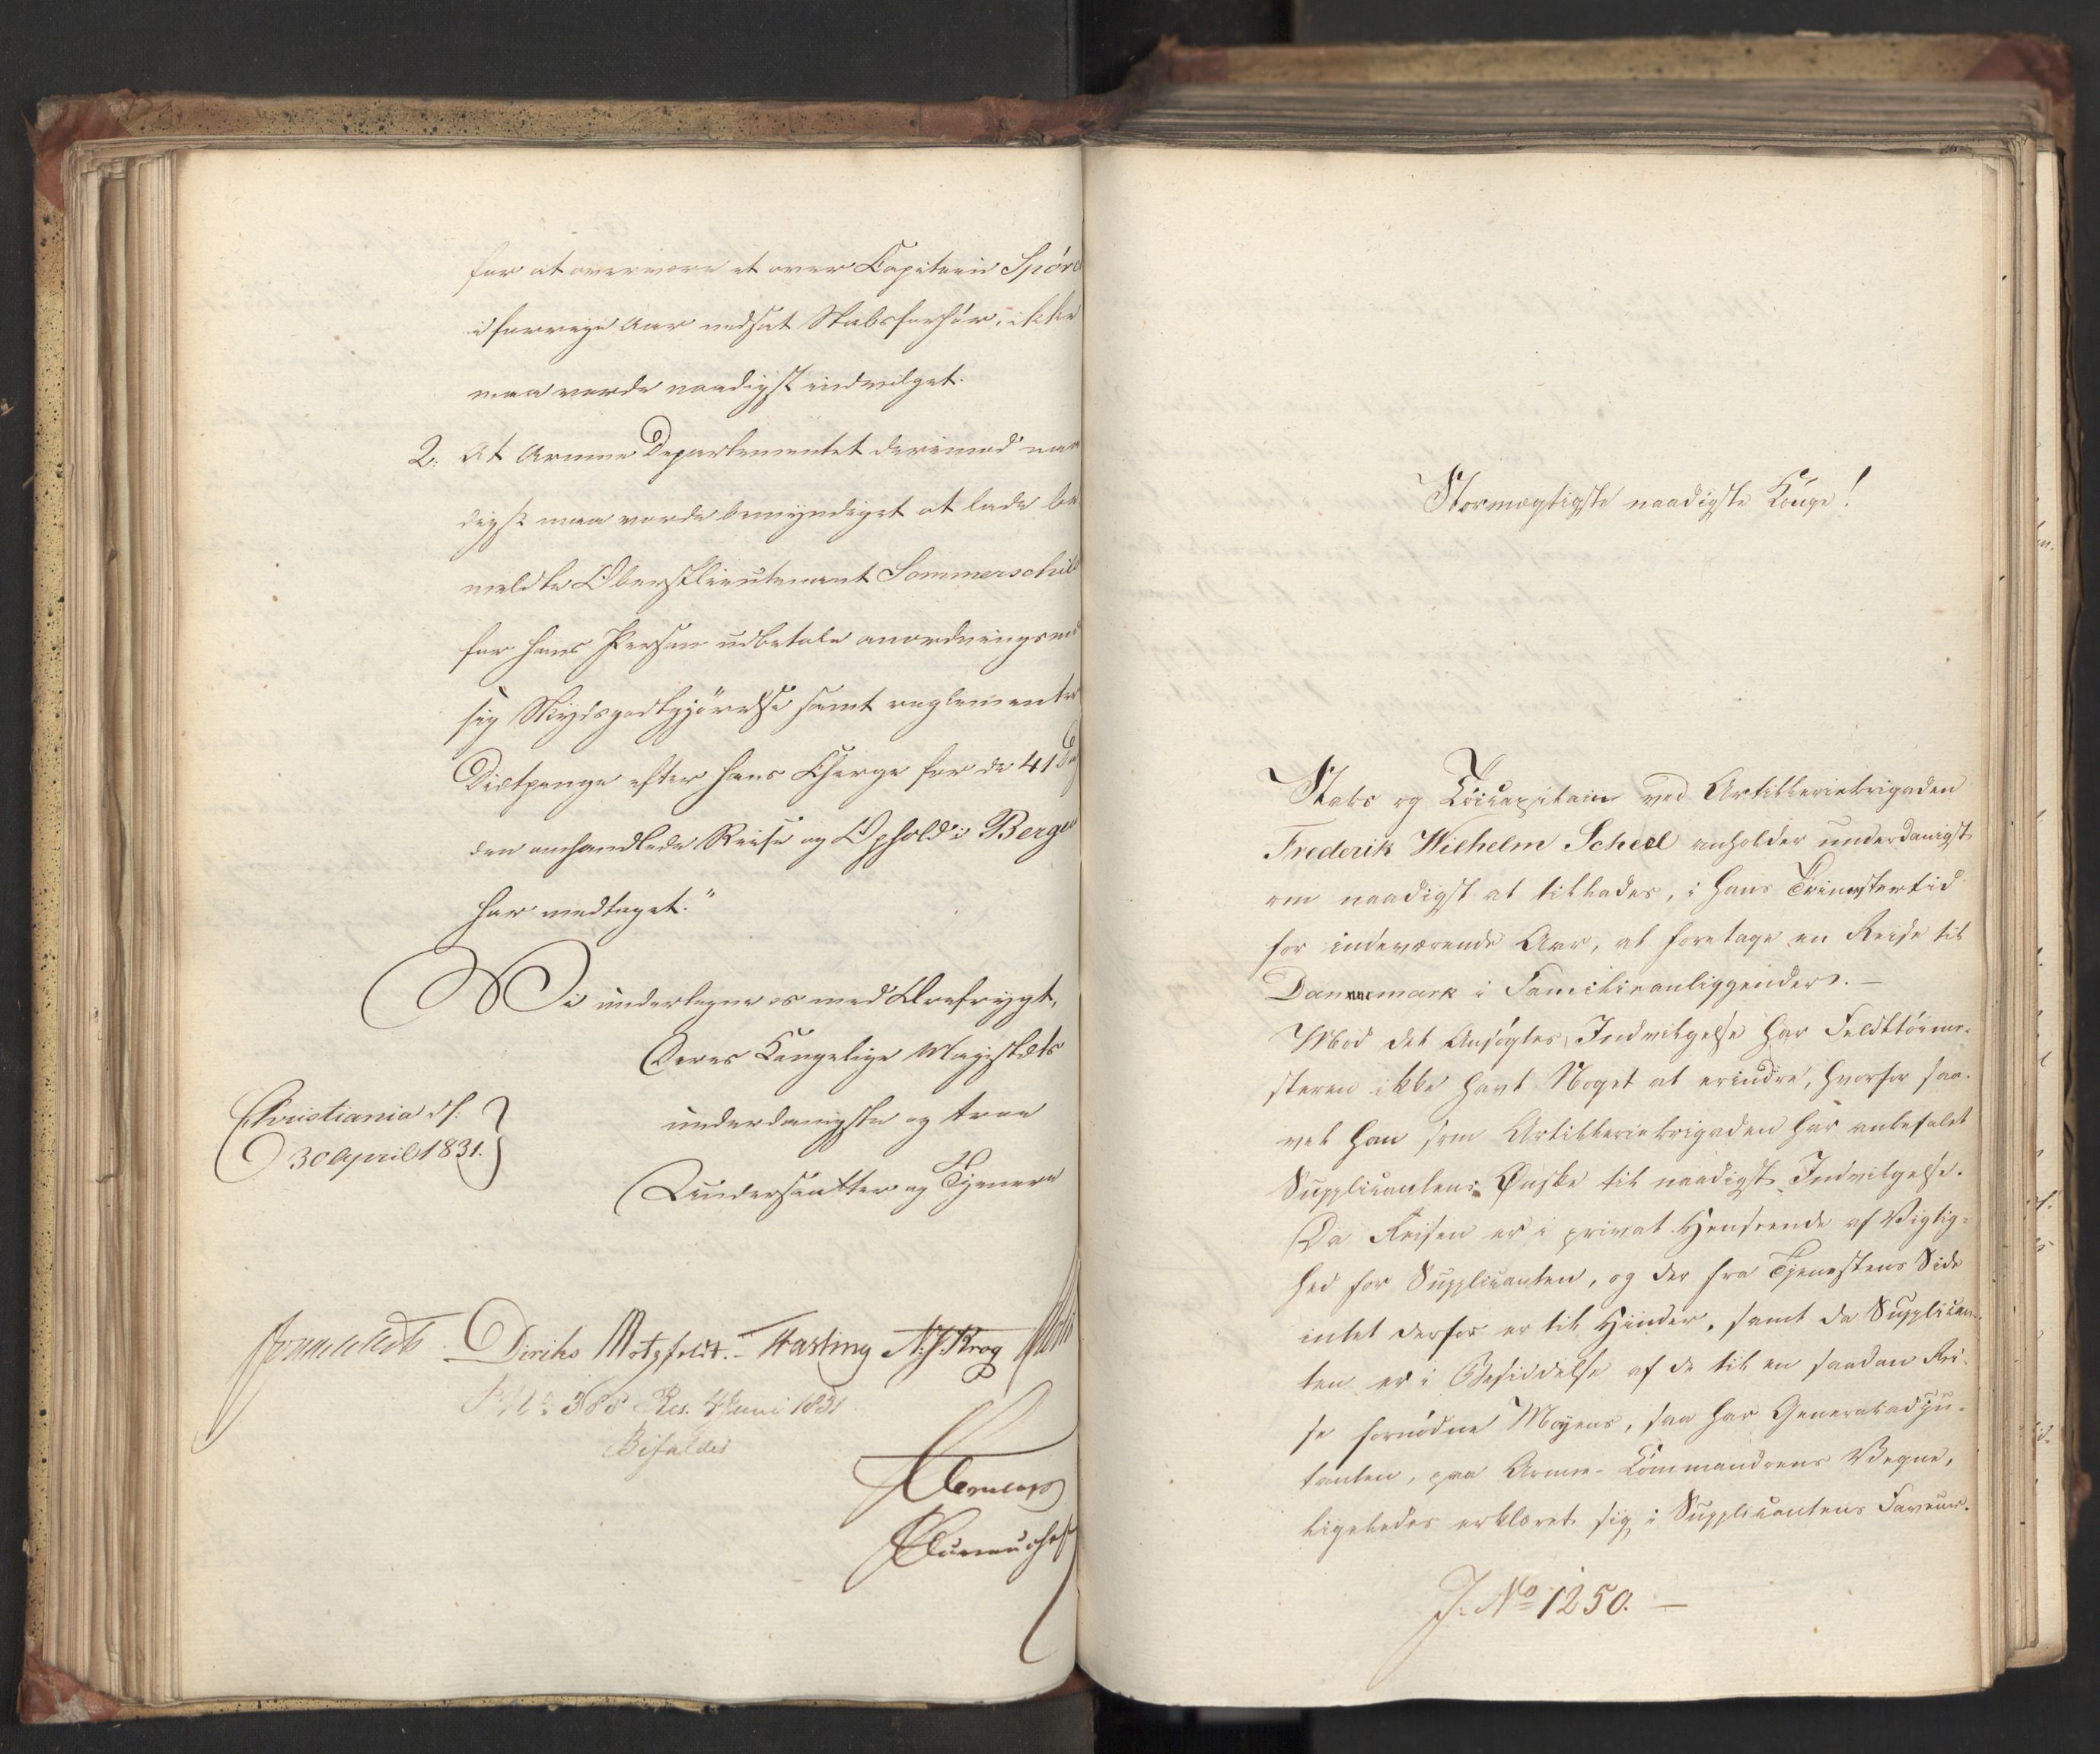 for at overvære et over Capitain Spörc
i forrige Aar nedsat Stabsforhör, ikke
maa vorde naadigst indvilget.
2. At Armee Departementet derimod naa
digst maa vorde bemyndiget at lade be
meldte Oberstlieutenant Sommerschild
for hans Person udbetale anordningsmæs
sig Skydsgodtgjörelse samt reglementeret
Diætpenge efter hans Charge for de 41 Dage
den omhandlede Reise og Ophold i Bergen
har medtaget."
Vi undertegne os med Ærefrygt,
Deres Kongelige Majestæts
Christiania d:
underdanigste og troe
30 April 1831.
Undersaatter og Tjenere
Diriks Motzfeldt. Fasting N. J. Krog
P. No 388 Res. 4 Juni 1831
Bifaldes
Stormægtigste naadigste Konge!
Stabs og Töicapitain ved Artilleriebrigaden
Frederik Wilhelm Scheel anholder underdanigst
om naadigst at tillades, i hans Trimestertid
for indeværende Aar, at foretage en Reise til
Dannemark i Familieanliggender. —
Mod det Ansögtes Indvilgelse har Feldttöime-
steren ikke havt Noget at erindre, hvorfor saa-
vel han som Artilleriebrigaden har anbefalet
Supplicantens Önske til naadigst Indvilgelse.
Da Reisen er i privat Henseende af Vigtig-
hed for Supplicanten, og der fra Tjenestens Side
intet derfor er til Hinder, samt da Supplican-
ten er i Besiddelse af de til en saadan Rei-
se fornödne Moyens, saa har Generaladju-
tanten, paa Armee-Commandoens Vegne,
ligeledes erklæret sig i Supplicantens Faveur.
J. No 1250. —